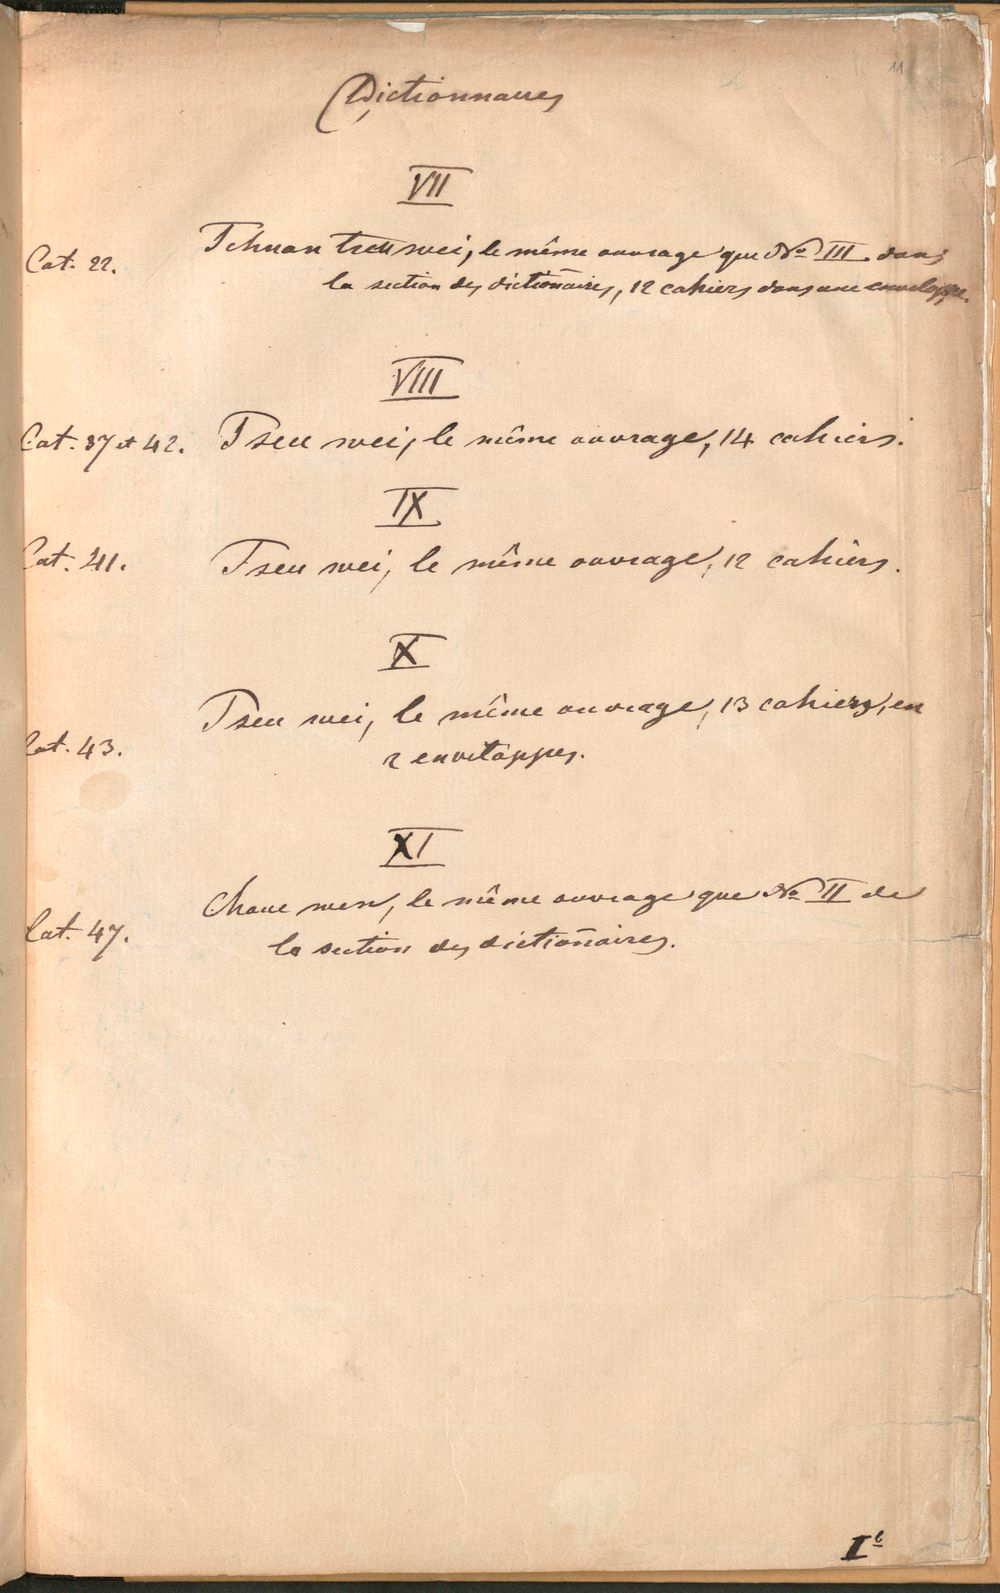 11
Dictionnaires
VII
Cat. 22.
Tchuan tseu wei, le même ouvrage que No III dans
la section des dictioñaires, 12 cahiers dans une enveloppe.
VIII
Cat. 37 et 42. Tseu wei, le même ouvrage, 14 cahiers.
IX
Cat. 41. Tseu wei, le même ouvrage, 12 cahiers.
X
Tseu wei, le même ouvrage, 13 cahiers, en
Cat. 43.
2 enveloppes.
XI
Choue wen, le même ouvrage que No II de
Cat. 47.
la section des dictioñaires.
I b